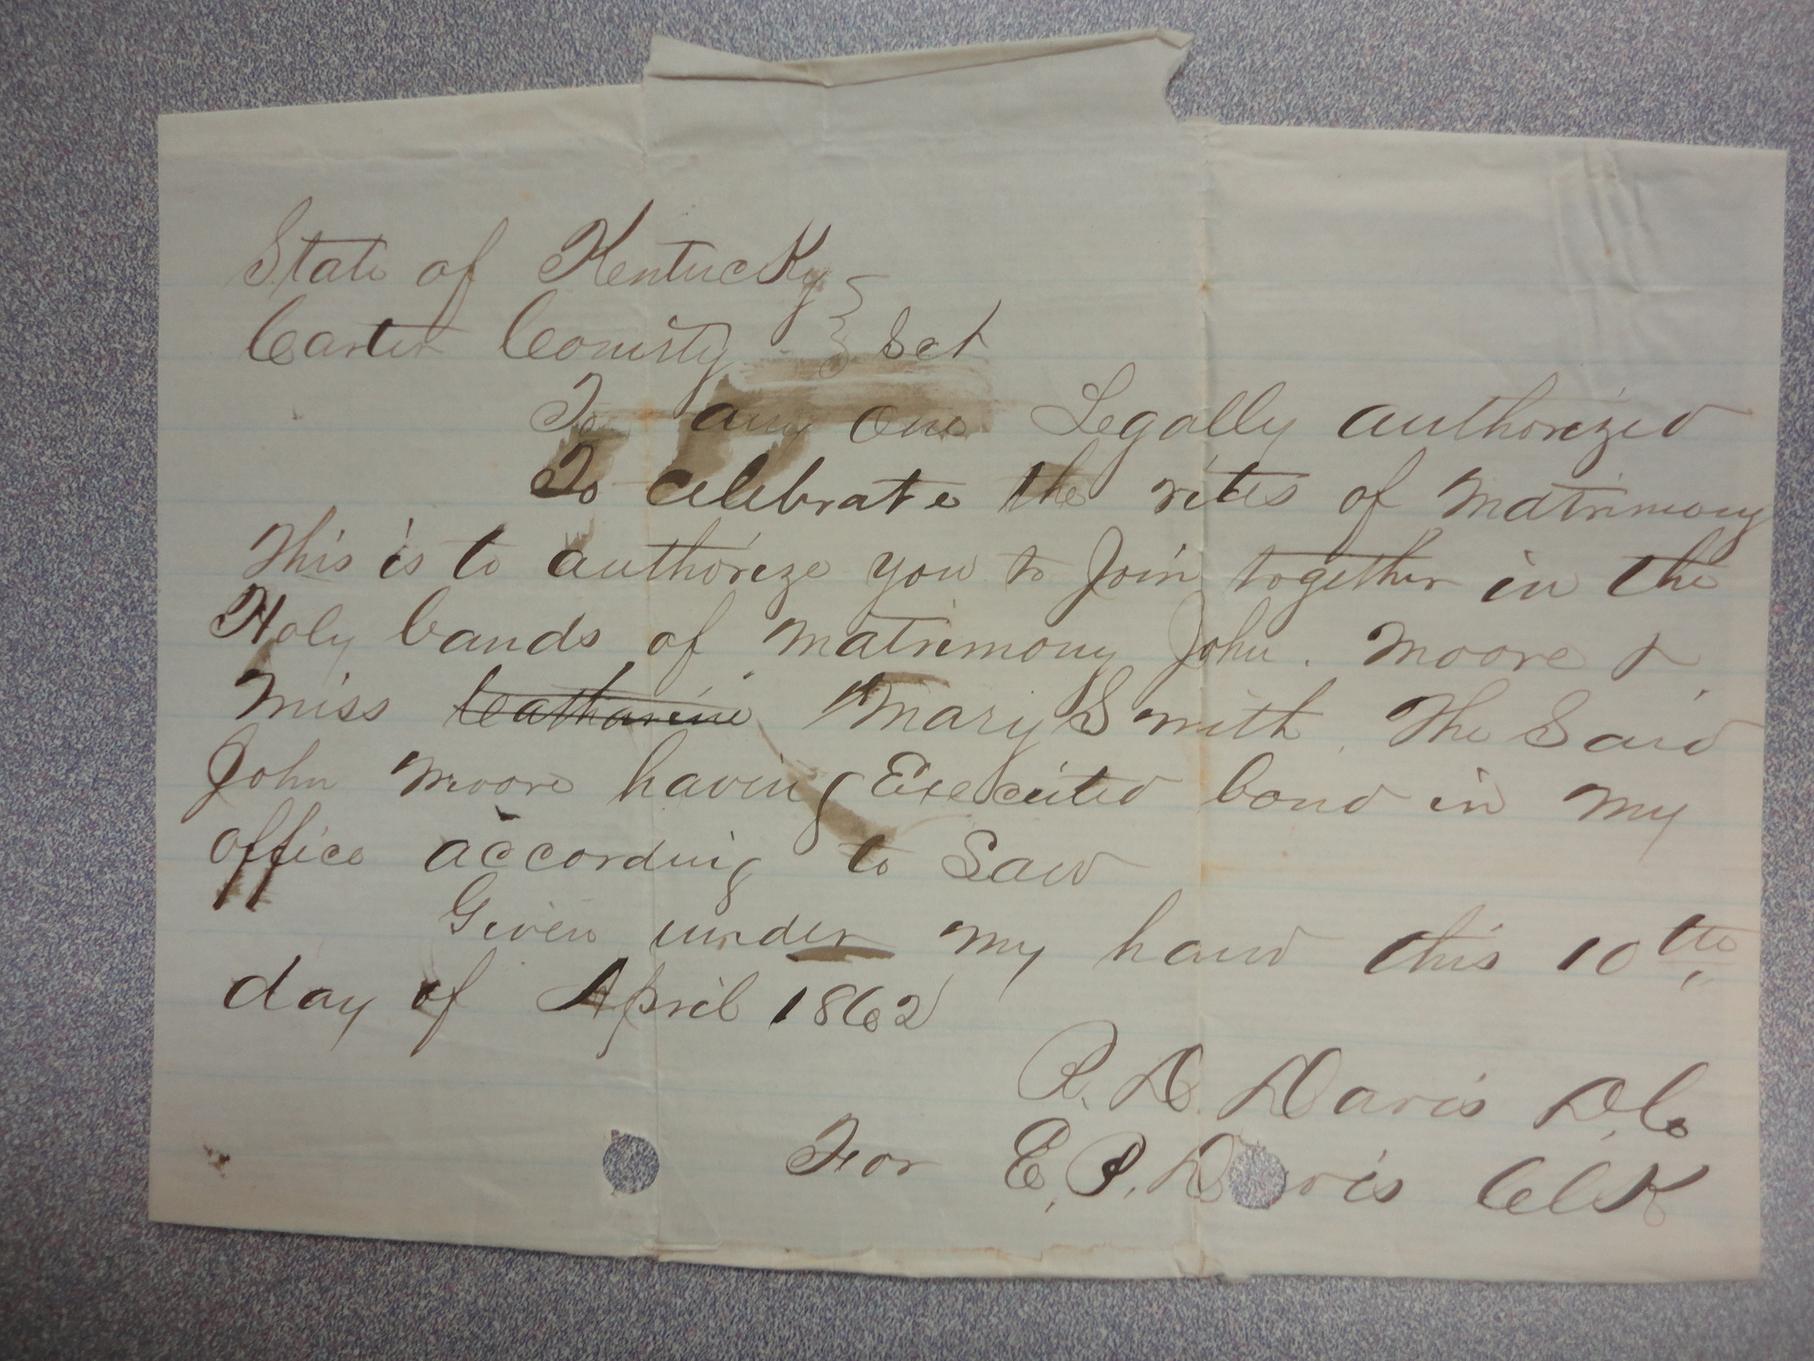 State of Kentucky }
Carter County } Sct
To any one Legally authorized
To celebrate the rites of Matrimony
This is to authorize you to Join together in the
Holy bands of Matrimony John. Moore &
Miss Catharine Mary Smith. The Said
John Moore having Executed bond in my
office according to Law
Given under my hand this 10th
day of April 1862
R. D. Davis D.C.
For E. P. Davis Clk